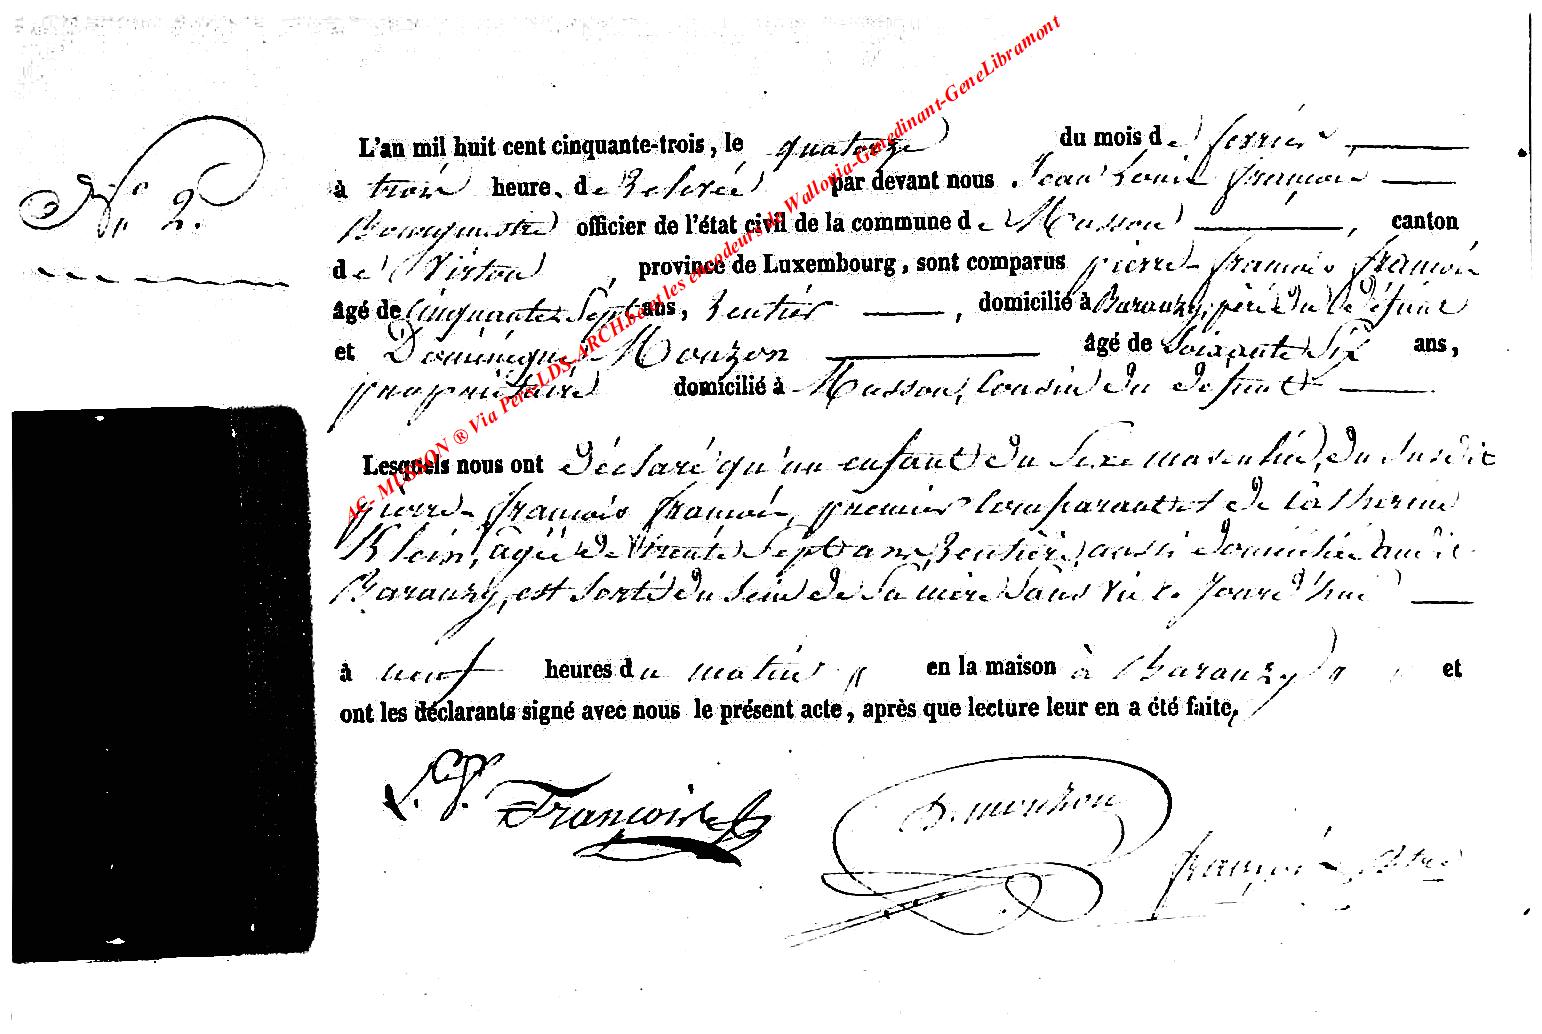 L'an mil huit cent cinquante-trois, le quatorze du mois de février
à trois heure. de Relevée par devant nous Jean Louis françois
N.° 2.
Bourgmestre officier de l'état civil de la commune de Musson, canton
de Virton, province de Luxembourg, sont comparus pierre françois françois
âgé de Cinquante Sept ans, Rentier, domicilié à Baranzy, père du défunt
et Dominique Mouzon âgé de Soixante Six ans,
propriétaire domicilié à Musson, Cousin du défunt
Lesquels nous ont déclaré qu'un enfant du Sexe masculin, du Susdit
pierre françois françois, premier Comparant et de Catherine
Klein, agée de trente Sept ans, Rentière, aussi domiciliée audit
Baranzy, est Sorti du Sein de Sa mère Sans vie ce Jourd'hui
à neuf heures du matin en la maison à Baranzy et
ont les déclarants signé avec nous le présent acte, après que lecture leur en a été faite,
françois
D. mouzon
françois
AC- MUSSON ® Via Pers-LDS-ARCH.be et les encodeurs de Wallonia-Genedinant-GeneLibramont